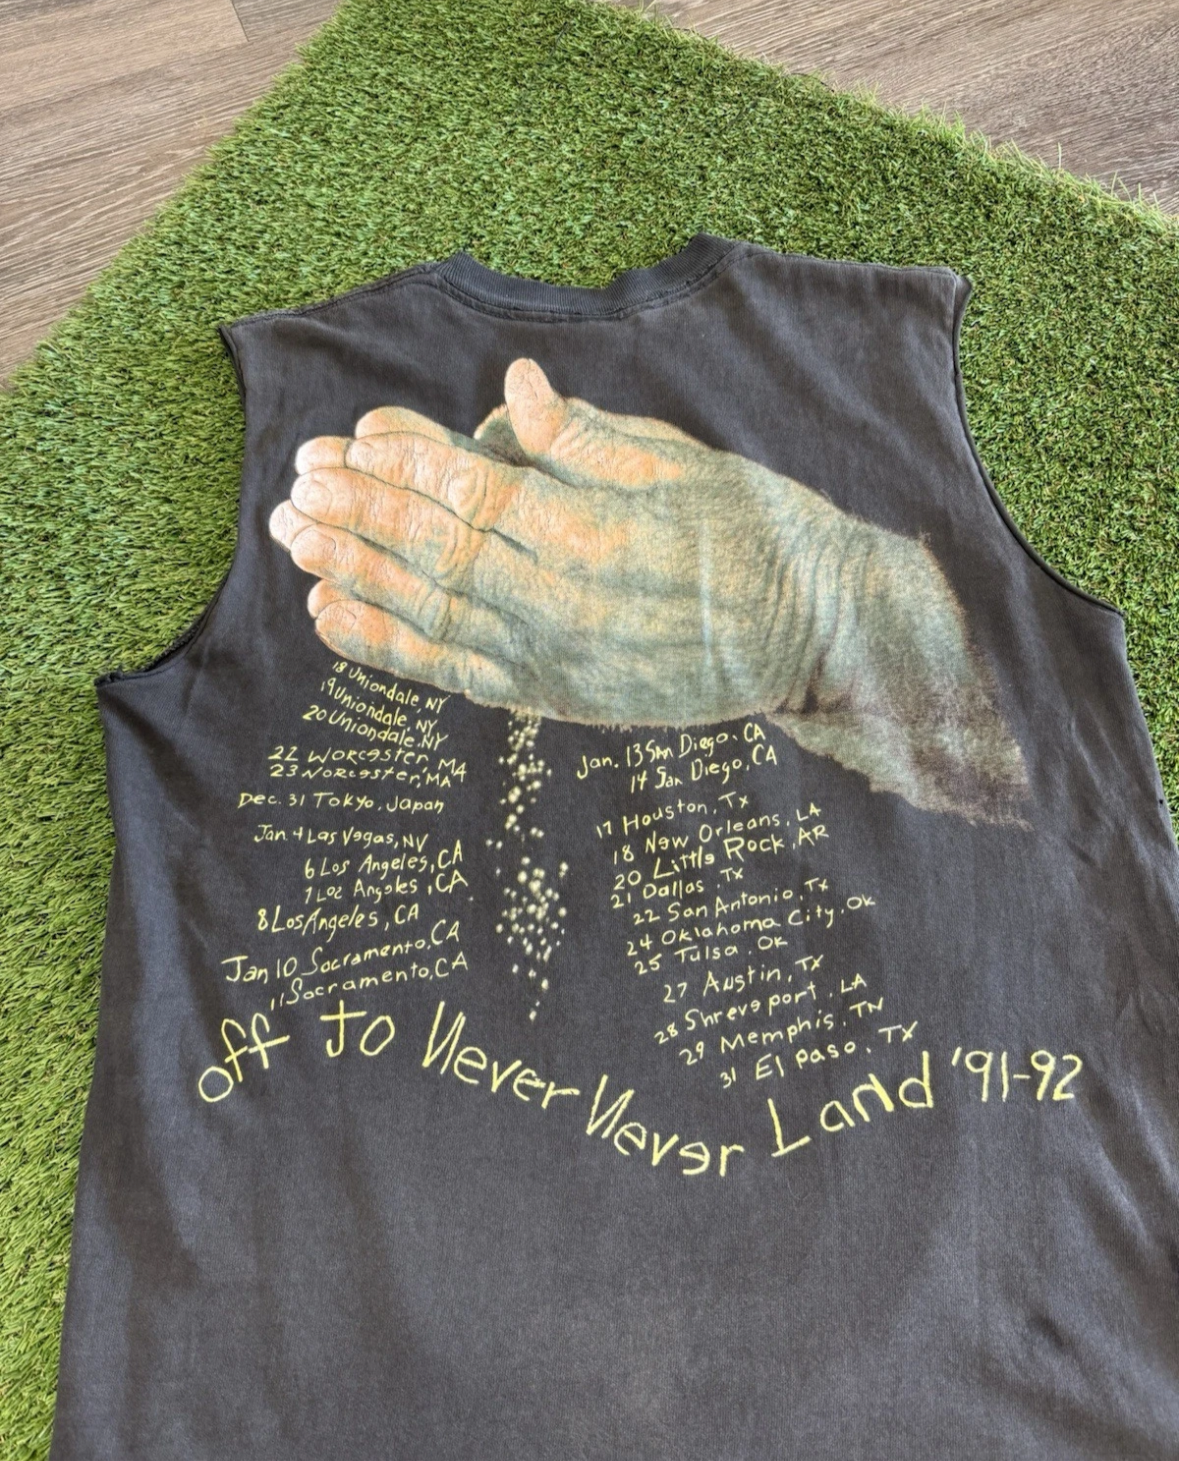 18 Uniondale, NY
19 Uniondale, NY
20 Uniondale, NY
22 Worcester, MA
23 Worcester, MA
Dec. 31 Tokyo, Japan
Jan 4 Las Vegas, NV
6 Los Angeles, CA
7 Los Angeles, CA
8 Los Angeles, CA
Jan 10 Sacramento, CA
11 Sacramento, CA
Jan. 13 San Diego, CA
14 San Diego, CA
17 Houston, Tx
18 New Orleans, LA
20 Little Rock, AR
21 Dallas, Tx
22 San Antonio, Tx
24 Oklahoma City, OK
25 Tulsa, OK
27 Austin, TX
28 Shreveport, LA
29 Memphis, TN
31 El Paso, TX
off to Never Never Land '91-92